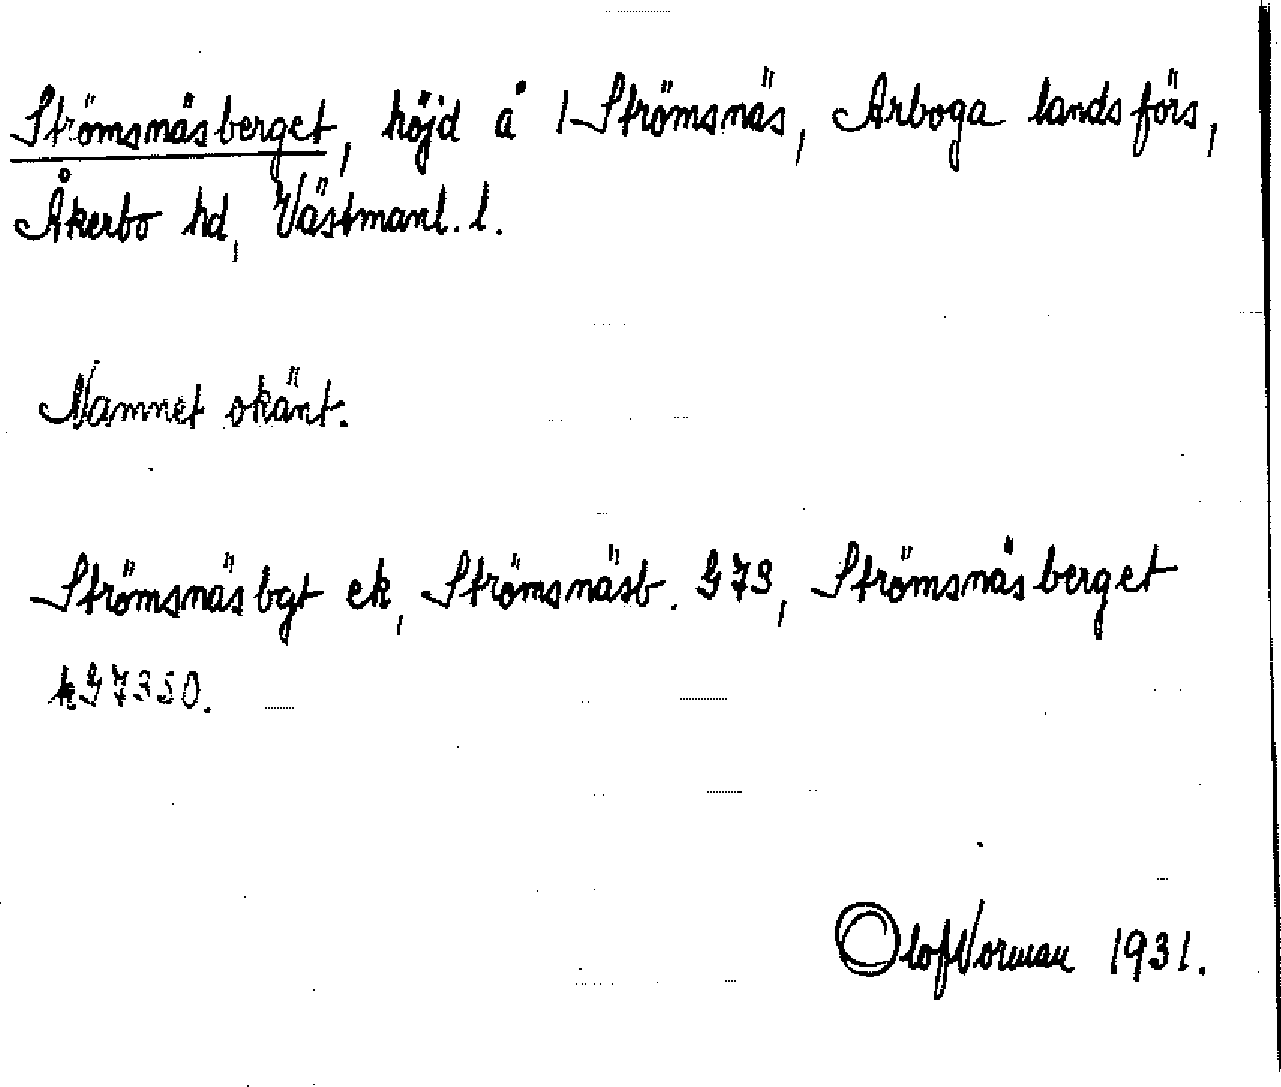 Strömsnäsberget, höjd å 1 Strömsnäs, Arboga landsförs,
Åkerbo hd, Västmanl. l.
Namnet okänt.
Strömsnäsbgt ek, Strömsnäsb. G73, Strömsnäsberget
kG7350.
Olof Norman 1931.